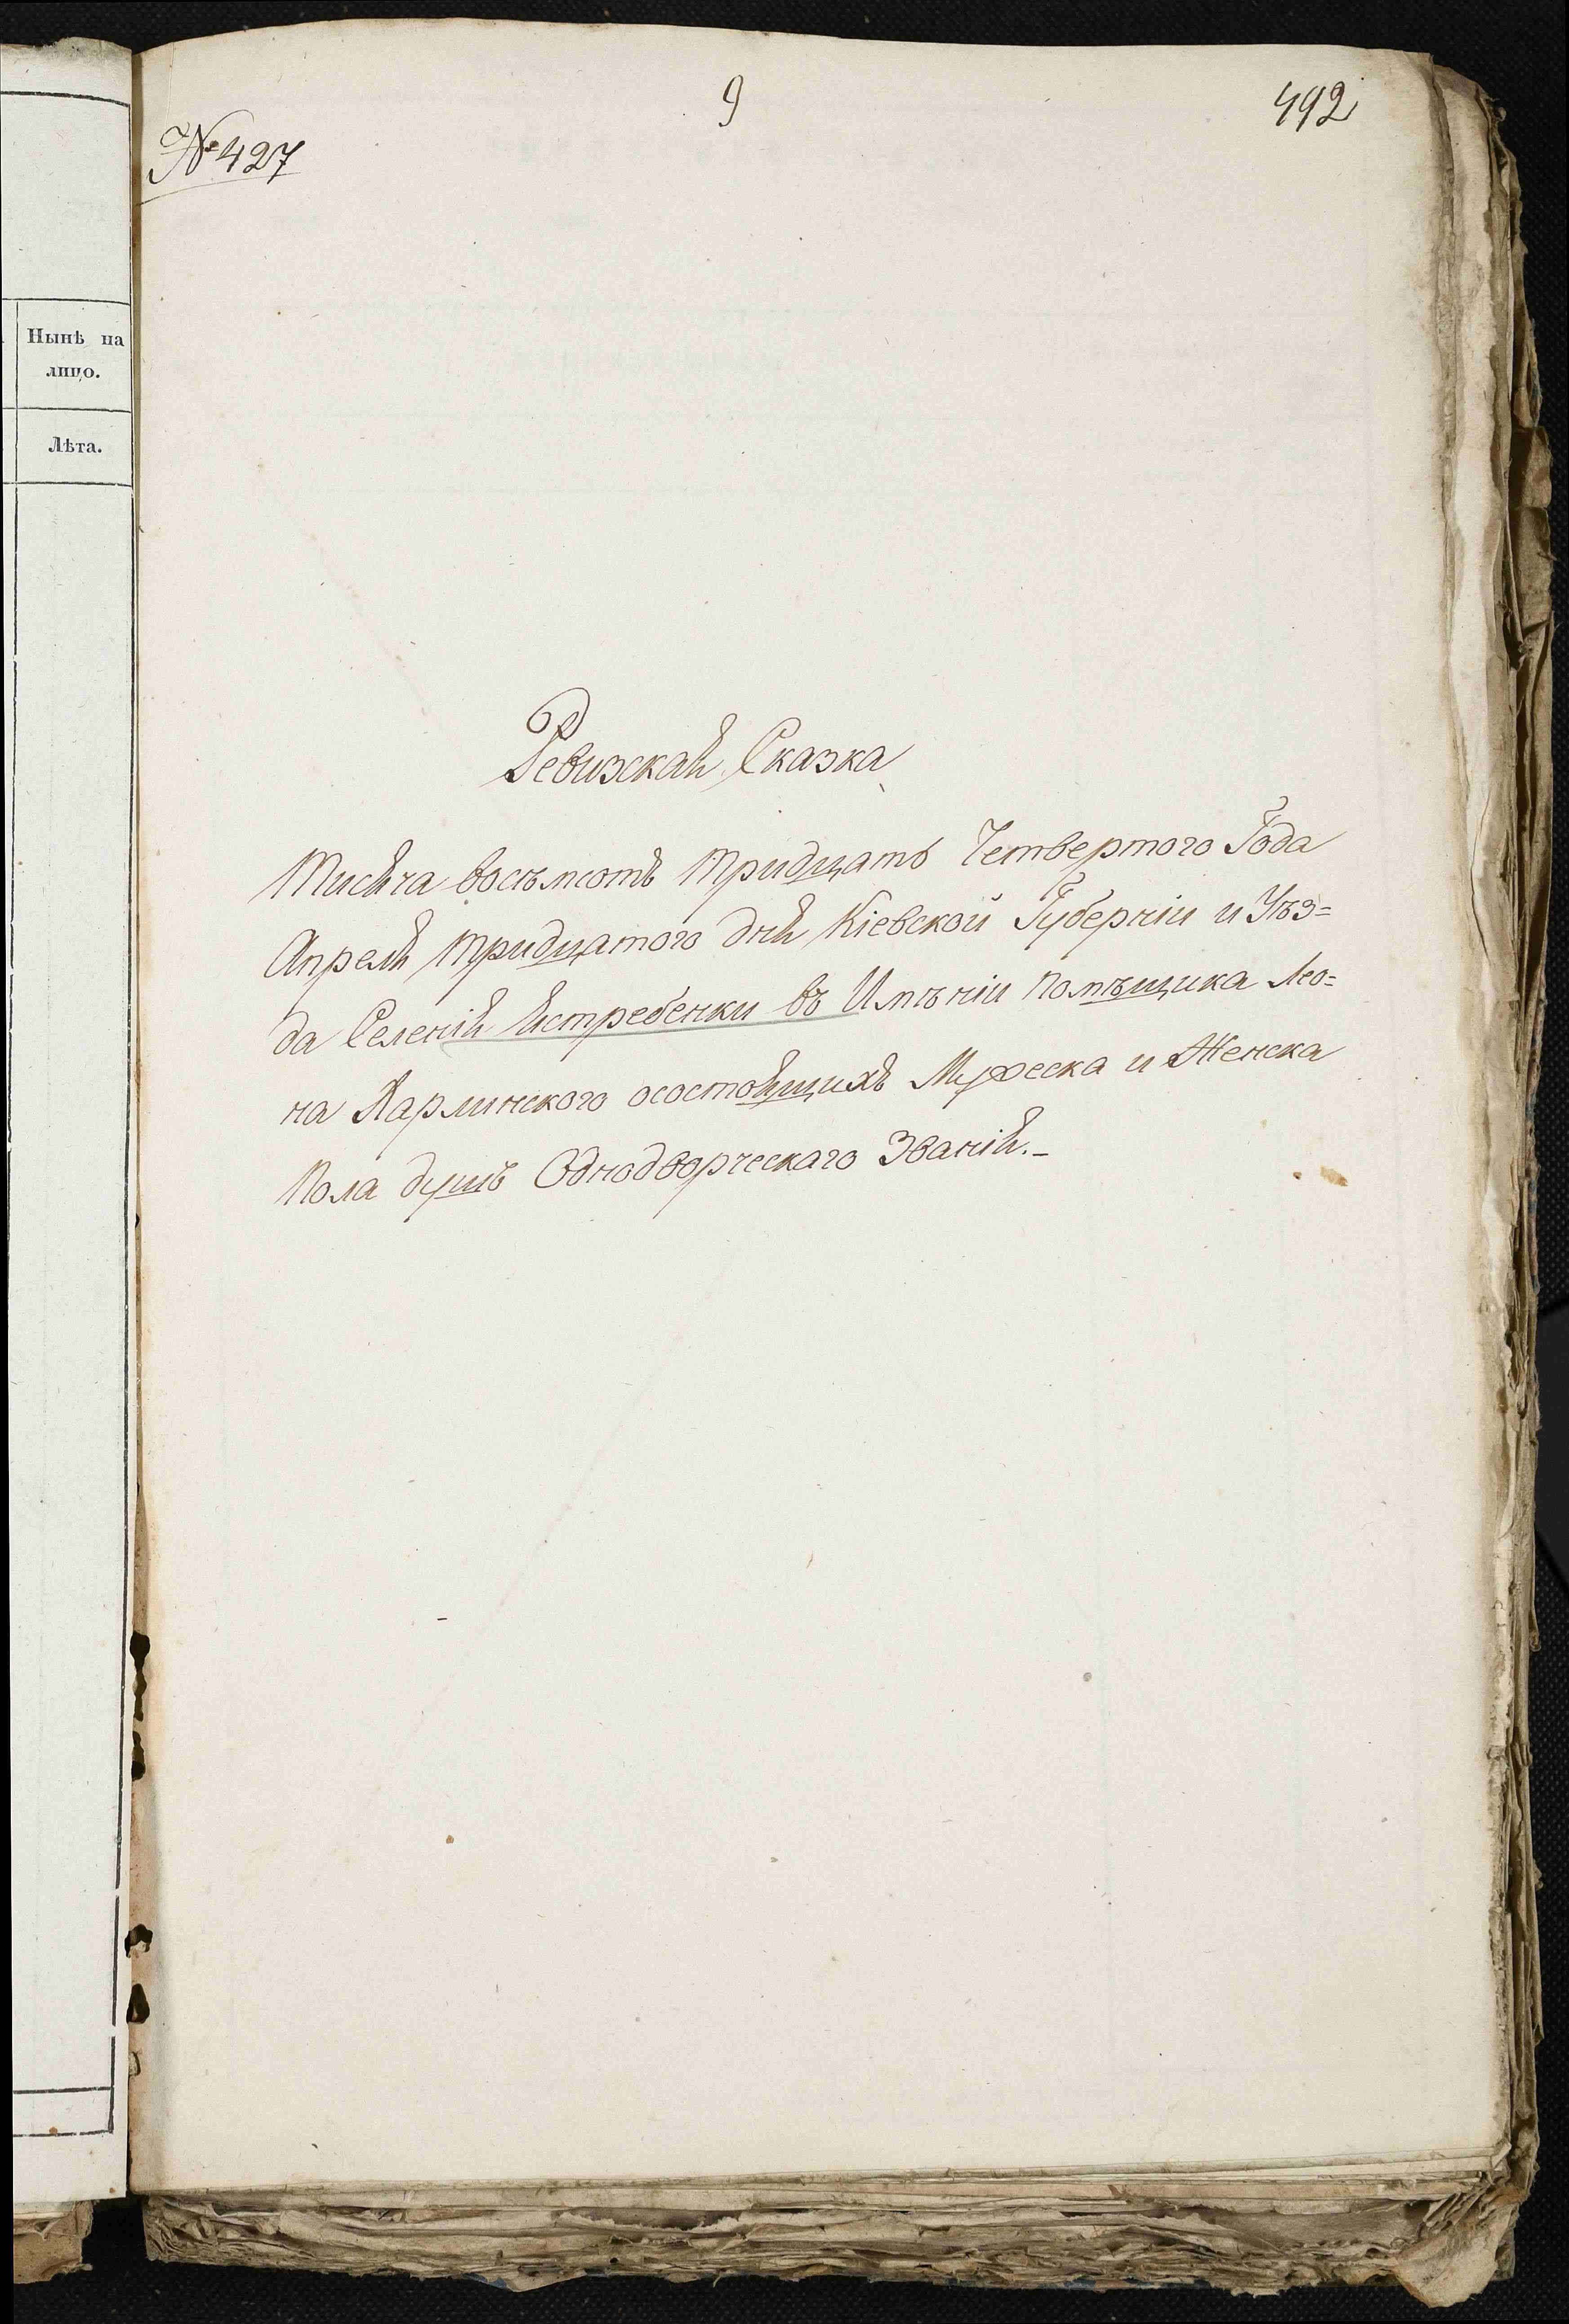 Нынѣ на
лицо.
Лѣта.
9
492
№ 427
Ревизская Сказка
Тисяча восъмсотъ тридцать Четвертого Года
Апреля тридцатого дня Кіевской Губерніи и Уѣз=
да Селенія Ястребенки въ Имѣніи помѣщика Лео=
на Харлинского осостоящихъ Мужеска и Женска
Пола душъ Однодворческаго Званія.-